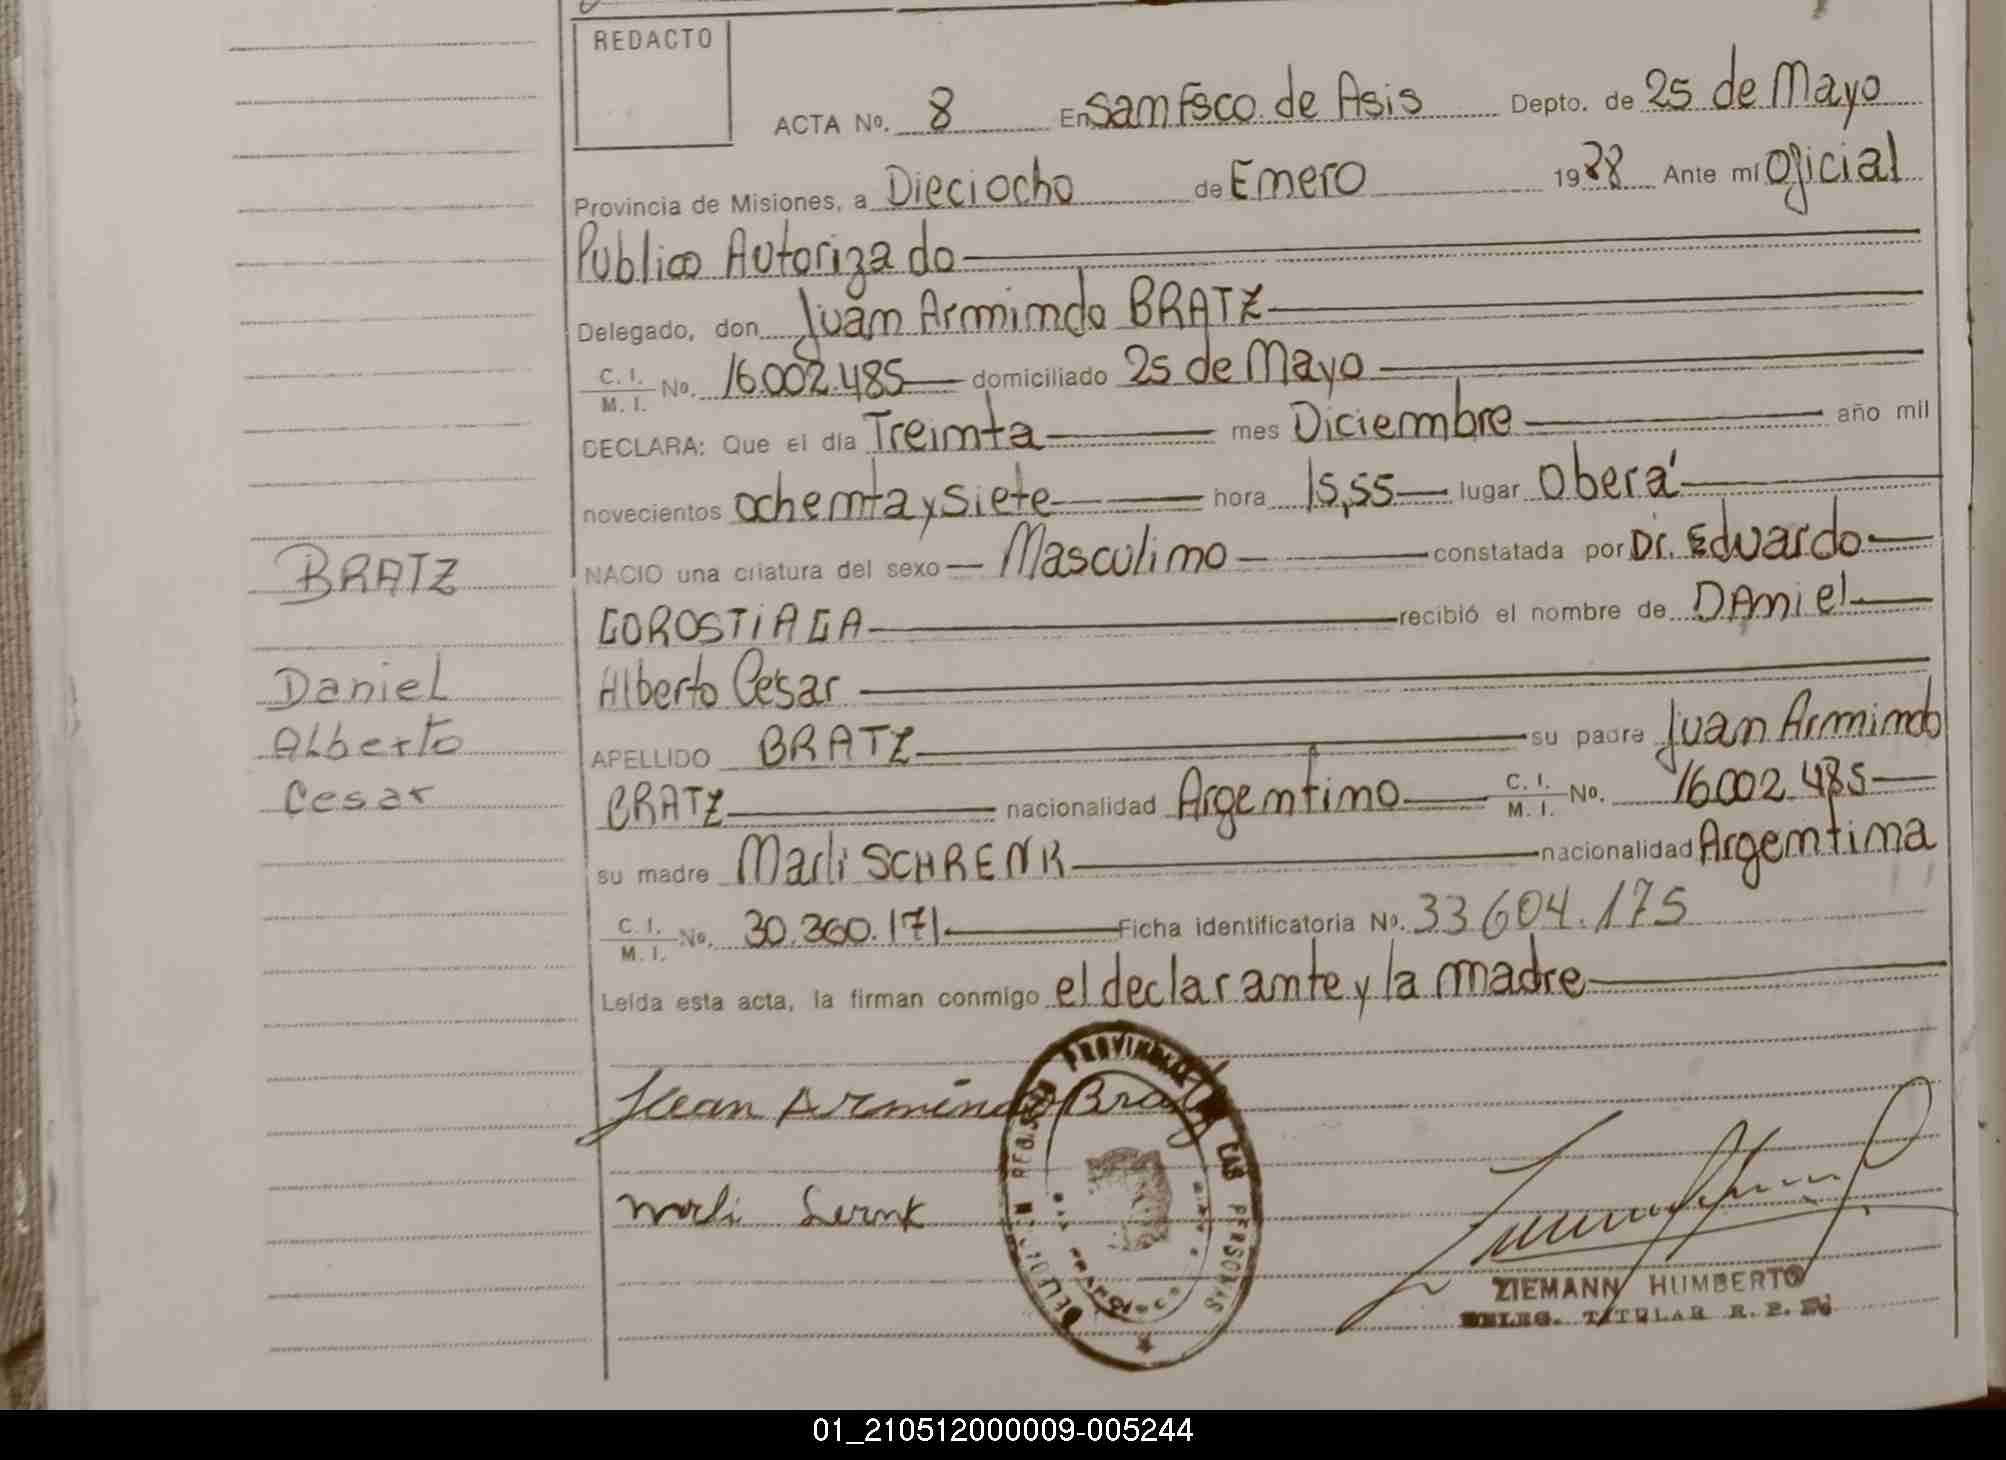 REDACTO
ACTA No. 8 En San Fsco. de Asis Depto. de 25 de Mayo
Provincia de Misiones, a Dieciocho de Enero 1988 Ante mí Oficial
Publico Autorizado
Delegado, don Juan Armindo BRATZ
C. I. / M. I. No. 16.002.485 domiciliado 25 de Mayo
DECLARA: Que el día Treinta mes Diciembre año mil
novecientos ochenta y siete hora 15,55 lugar Oberá
NACIO una criatura del sexo Masculino constatada por Dr. Eduardo
GOROSTIAGA recibió el nombre de Daniel
Alberto Cesar
APELLIDO BRATZ su padre Juan Armindo
BRATZ nacionalidad Argentino C. I. / M. I. No. 16.002.485
su madre Marli SCHRENK nacionalidad Argentina
C. I. / M. I. No. 30.360.171 Ficha identificatoria No. 33604.175
Leída esta acta, la firman conmigo el declarante y la madre
BRATZ
Daniel
Alberto
Cesar
Juan Armindo Bratz
PROVINCIAL DE LAS PERSONAS
ZIEMANN HUMBERTO
DELEG. TITULAR R. P.
01_210512000009-005244